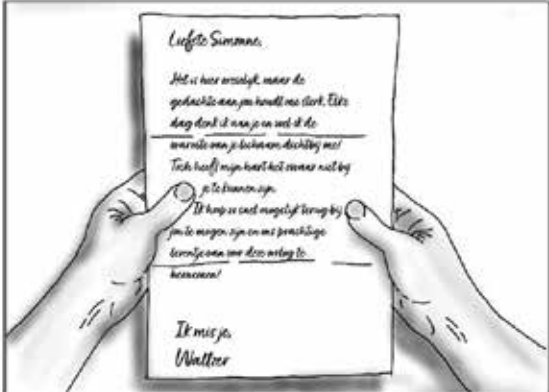 Liefste Simonne,
Het is hier vreselijk, maar de
gedachte aan jou houdt me sterk. Elke
dag denk ik aan je en voel ik de
warmte van je lichaam dichtbij me!
Toch heeft mijn hart het zwaar niet bij
je te kunnen zijn.
Ik hoop zo snel mogelijk terug bij
jou te mogen zijn en ons prachtige
leventje van voor deze oorlog te
hernemen!
Ik mis je,
Walter